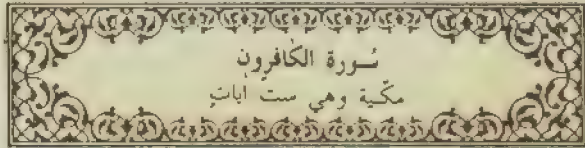 سورة الكافرون
مكّية وهي ست ايات